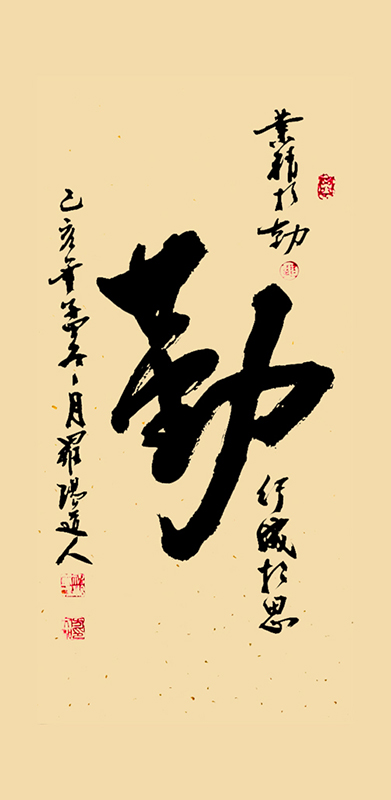 業精於勤
勤
行成於思
己亥年孟冬之月羅陽道人